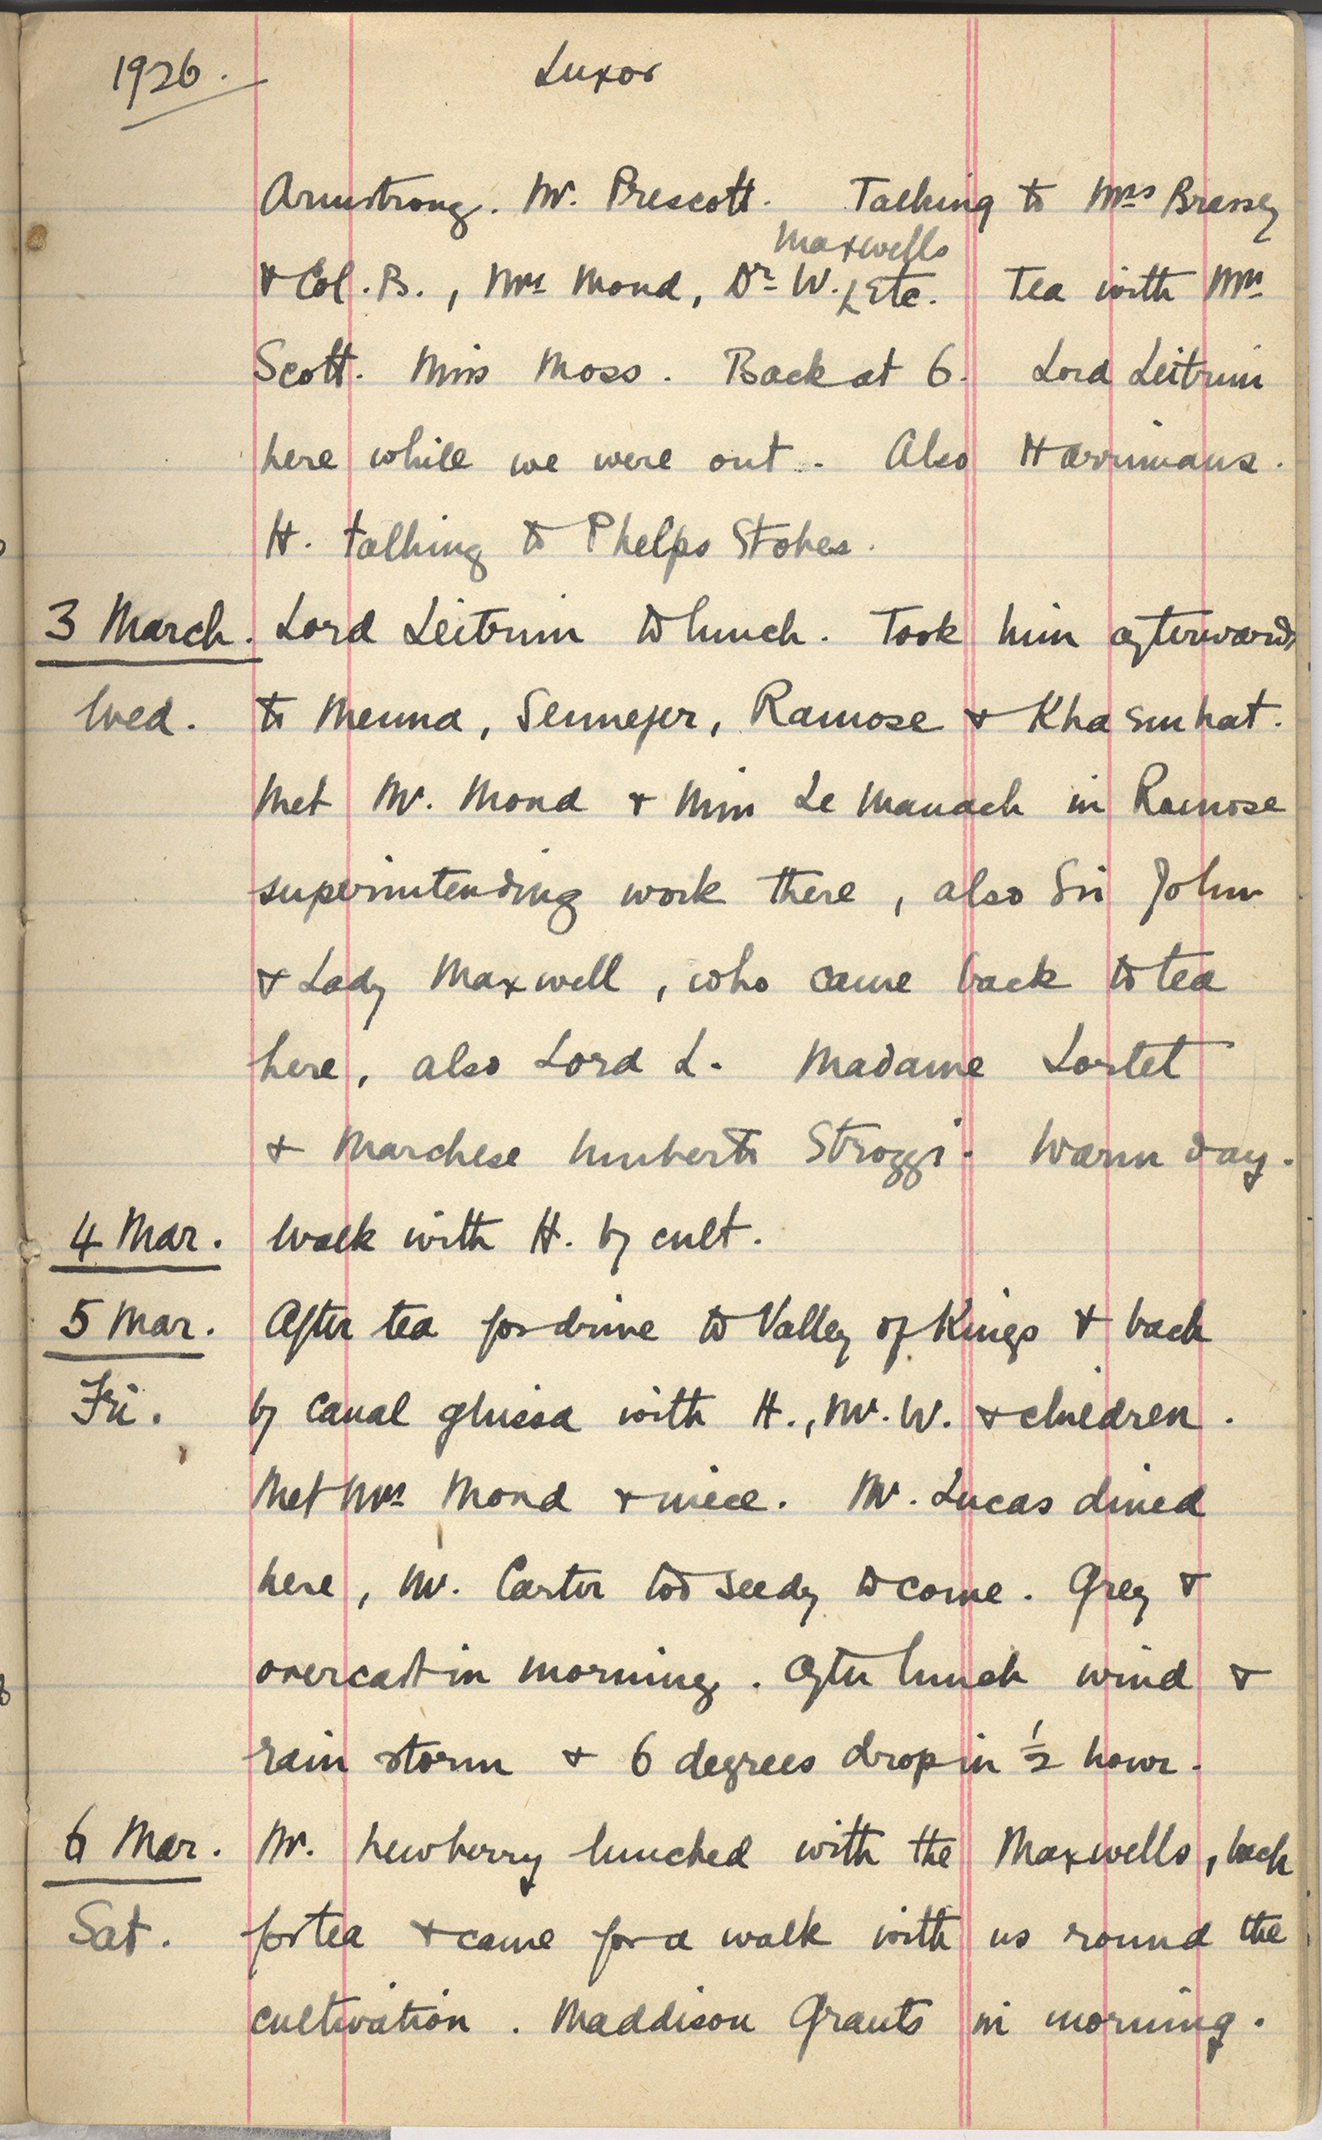 1926.
Luxor
Armstrong. Mr. Prescott. Talking to Mrs Brassey
Maxwells
& Col. B., Mrs Mond, Dr W. Etc. Tea with Mrs
Scott. Miss Moss. Back at 6. Lord Leitrim
here while we were out. Also Harrimans.
H. talking to Phelps Stokes.
3 March. Lord Leitrim to lunch. Took him afterwards
Wed. to Menna, Sennefer, Ramose & Khaemhat.
Met Mr. Mond & Miss Le Manach in Ramose
superintending work there, also Sir John
& Lady Maxwell, who came back to tea
here, also Lord L. Madame Lortet
& Marchese Umberto Strozzi. Warm day.
4 Mar. Walk with H. by cult.
5 Mar. After tea for drive to Valley of Kings & back
Fri. by canal ghissa with H., Mr. W. & children.
Met Mrs Mond & niece. Mr. Lucas dined
here, Mr. Carter too seedy to come. Grey &
overcast in morning. After lunch wind &
rain storm & 6 degrees drop in ½ hour.
6 Mar. Mr. Newberry lunched with the Maxwells, back
Sat. for tea & came for a walk with us round the
cultivation. Maddison Grants in morning.